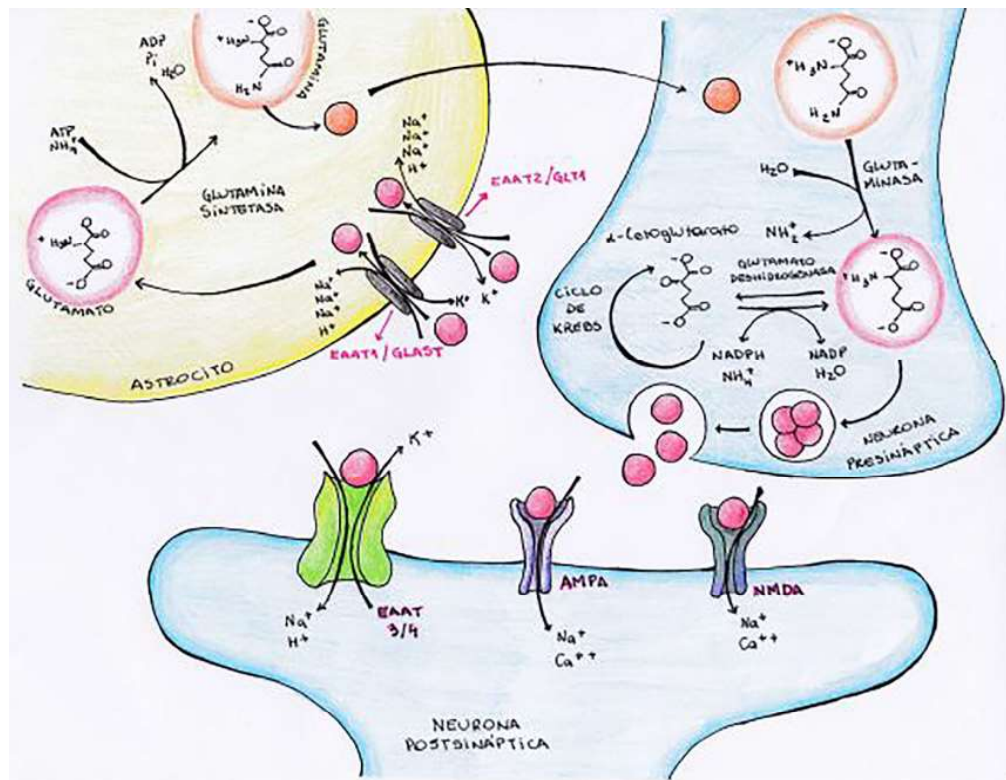 ADP
Pi
H₂O
ATP
NH₄⁺
GLUTAMINA
⁺H₃N
O⁻
O
O
H₂N
GLUTAMINA
SINTETASA
⁺H₃N
O⁻
O
O
O⁻
GLUTAMATO
Na⁺
Na⁺
Na⁺
H⁺
EAAT2/GLT1
K⁺
Na⁺
Na⁺
Na⁺
H⁺
K⁺
EAAT1/GLAST
ASTROCITO
⁻O
O
⁺H₃N
O
H₂N
H₂O
GLUTA-
MINASA
NH₂⁺
α-Cetoglutarato
GLUTAMATO
DESHIDROGENASA
CICLO
DE
KREBS
⁻O
O
O
O
⁻O
⁻O
O
⁺H₃N
O
⁻O
NADPH
NH₄⁺
NADP
H₂O
NEURONA
PRESINÁPTICA
K⁺
Na⁺
H⁺
EAAT
3/4
AMPA
Na⁺
Ca⁺⁺
NMDA
Na⁺
Ca⁺⁺
NEURONA
POSTSINÁPTICA